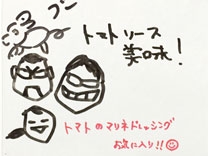 フン
トマトソース
美味!
トマトのマリネドレッシング
お気に入り!!